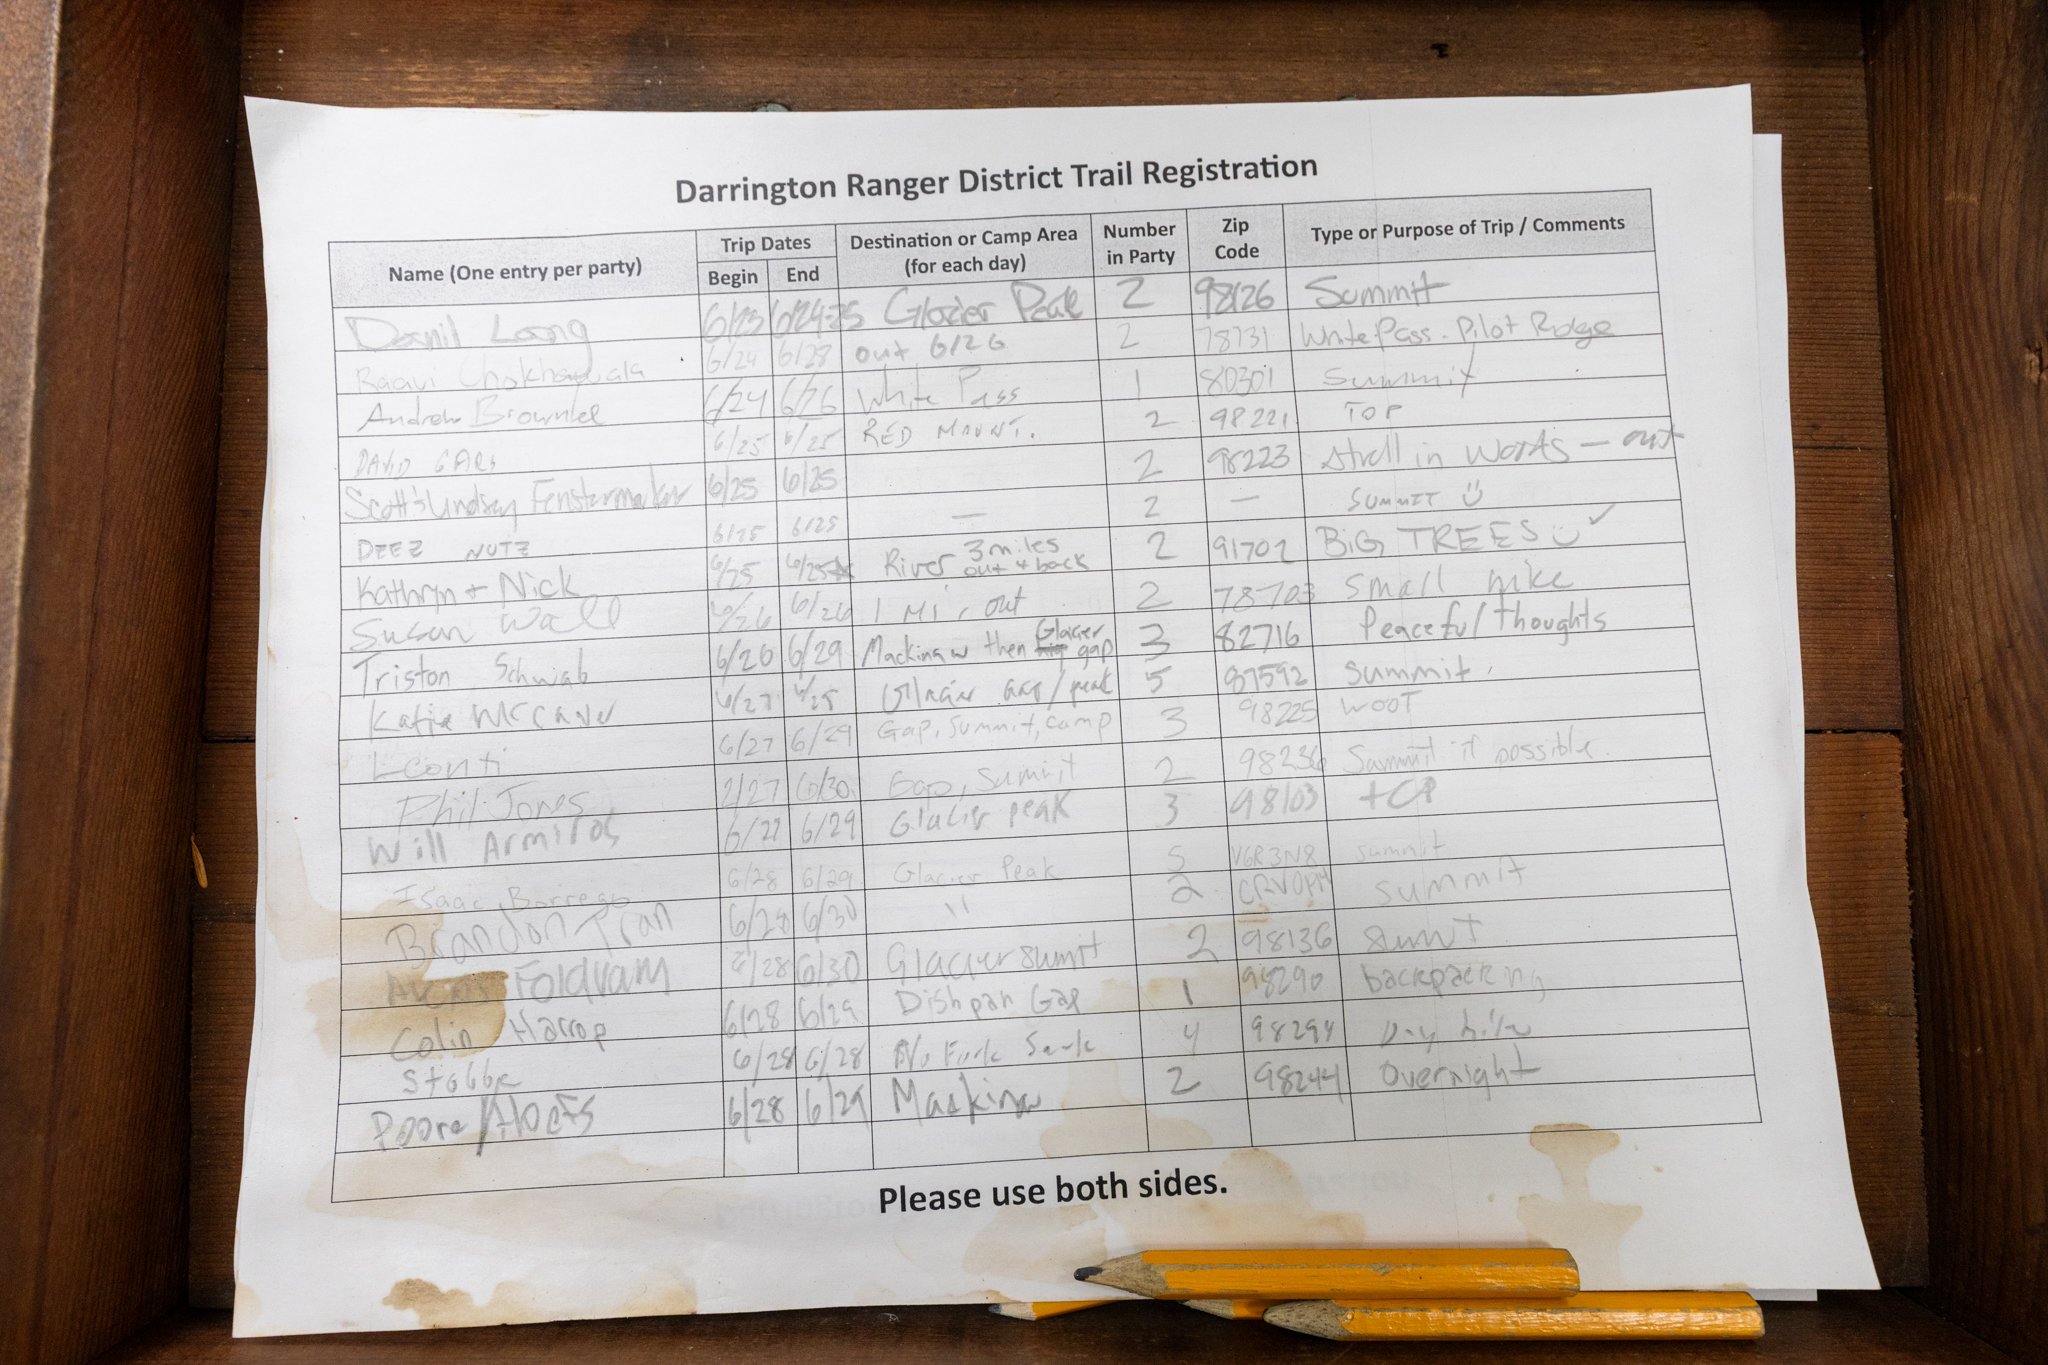 Darrington Ranger District Trail Registration
Name (One entry per party) Trip Dates Begin End Destination or Camp Area (for each day) Number in Party Zip Code Type or Purpose of Trip / Comments
Loong 6/23 6/24-25 Glacier Peak 2 98126 Summit
Raavi 6/24 6/28 out 6/26 2 78731 White Pass - Pilot Ridge
Andrew Brownlee 6/24 6/26 White Pass 1 80301 Summit
DAVID 6/25 6/25 RED MOUNT. 2 98221 TOP
Scott & Lindsey Fenstermaker 6/25 6/25 2 98223 stroll in woods — out
DEEZ NUTZ 6/25 6/25 — 2 — SUMMIT
Kathryn + Nick 6/25 6/25 River 3 miles out + back 2 91702 BIG TREES ✓
Susan Wall 6/26 6/26 1 Mi, out 2 78703 small hike
Triston Schwab 6/26 6/29 Mackinaw then Glacier gap 3 82716 Peaceful thoughts
Katie McCaver 6/27 Glacier Gap/peak 5 87592 Summit
Lconti 6/27 6/29 Gap, Summit, camp 3 98225 WOOT
Phil Jones 6/30 Gap, Summit 2 98236 Summit if possible.
Will 6/27 6/29 Glacier peak 3 98103
Isaac Borrego 6/28 6/29 Glacier Peak 5 V6R3N8 summit
Brandon Tran 6/28 6/30 " 2 Summit
6/28 6/30 Glacier Summit 2 98136
Colin Harrop 6/28 6/29 Dishpan Gap 1 98290 backpacking
6/28 6/28 4 98294 Day hike
6/28 6/29 2 98244 Overnight
Please use both sides.